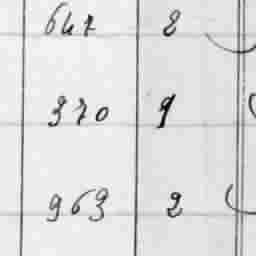 647 8
370 9
963 2